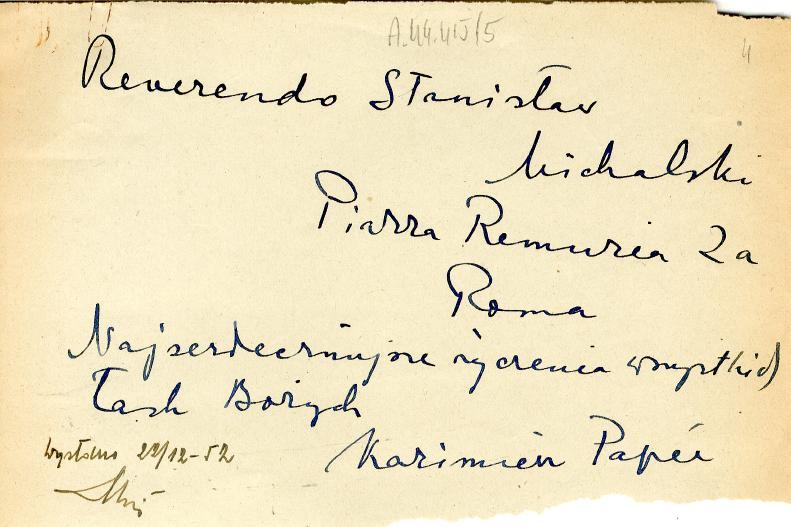 A.44.415/5
4
Reverendo Stanisław
Michalski
Piazza Remuria 2a
Roma
Najserdeczniejsze życzenia wszystkich
Łask Bożych
Kazimierz Papée
Wysłano 22/12-52